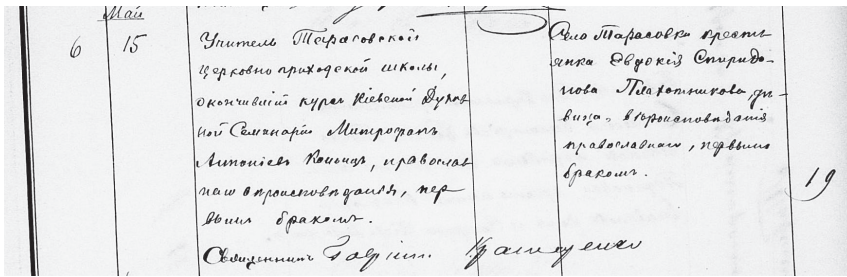 Май
6 15 Учитель Тарасовской
церковно приходской школы,
окончившій курсъ Кіевской Духов
ной Семинаріи Митрофанъ
Антоніевъ, православ
наго вѣроисповѣданія, пер
вымъ бракомъ.
Село Тарасовки кресть
янка Евдокія Спиридо-
нова Плахотникова, дѣ-
вица, вѣроисповѣданія
православнаго, первымъ
бракомъ.
19
Священникъ Гавріилъ